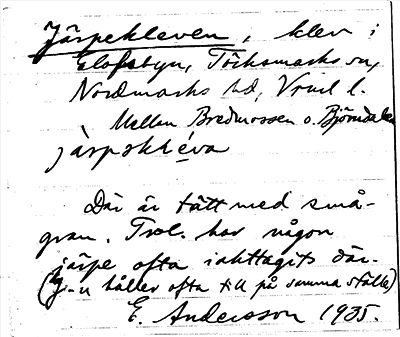 Järpekleven, klev i
Olofsbyn, Töcksmarks sn,
Nordmarks hd, Vrml l.
Mellan Bredmossen o. Björndalen
järpskkléva
Där är tätt med små-
gran. Trol. har någon
järpe ofta iakttagits där.
(J-n håller ofta till på samma ställe)
E. Andersson 1935.